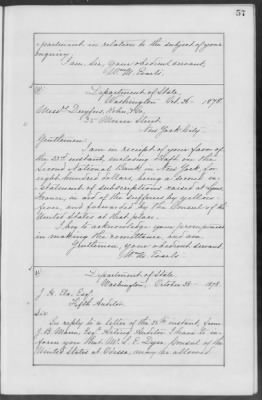 57
partment in relation to the subject of your
inquiry.
I am, Sir, your obedient servant,
Wm. M. Evarts.
Department of State,
Washington Oct. 26 - 1878.
Messrs. Dreyfus, Kohn, & Co.
35 Mercer Street.
New York City.
Gentlemen:
I am in receipt of your favor of
the 23rd instant, enclosing draft on the
Second National Bank in New York, for
eight hundred dollars, being a second in-
statement of subscriptions raised at your
House, in aid of the sufferers by yellow
fever, and forwarded by the Consul of the
United States at that place.
I beg to acknowledge your promptness
in making the remittance, and am,
Gentlemen, your obedient servant
Wm. M. Evarts
Department of State.
Washington, October 26 - 1878.
J. H. Ela, Esq.
Fifth Auditor
Sir:
In reply to a letter of the instant, from
J. B. Mann, Esq. Acting Auditor I have to in-
form you that Mr. L. E. Dyer, Consul of the
United States at Odessa, may be allowed